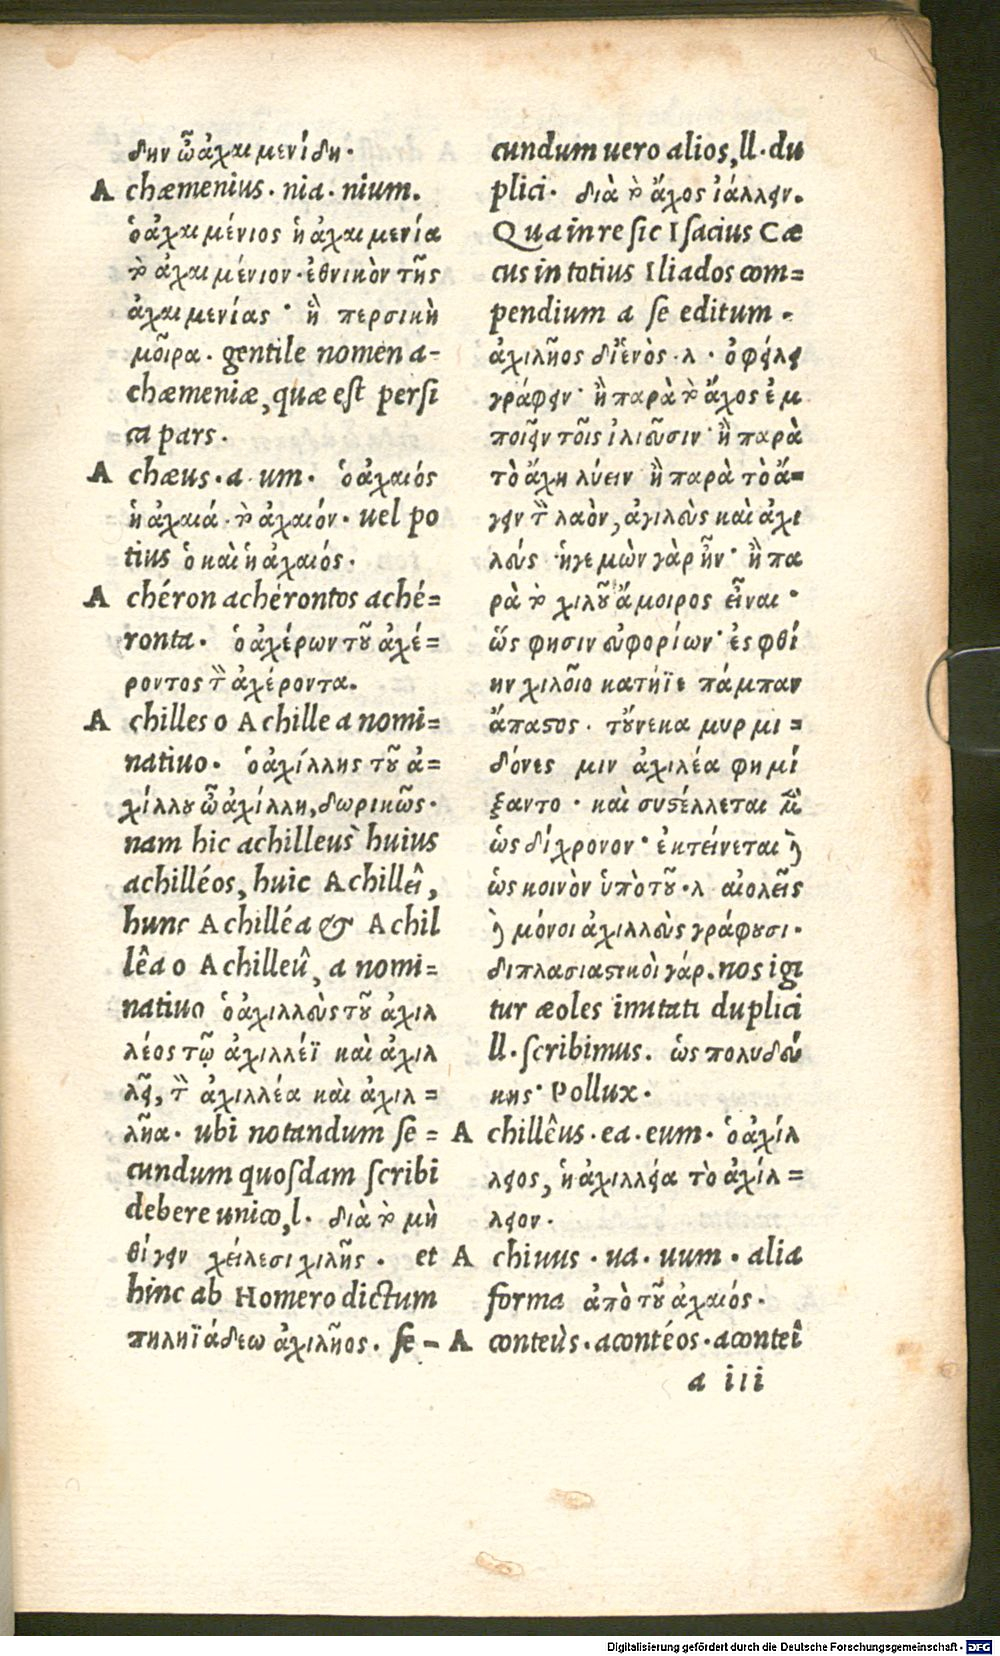 δην ὦ ἀχαιμενίδη·
Achæmenius·nia·nium.
ὁ ἀχαιμένιος ἡ ἀχαιμενία
τὸ ἀχαιμένιον·ἐθνικὸν τῆς
ἀχαιμενίας· ἢ περσικὴ
μοῖρα· gentile nomen a-
chæmeniæ, quæ eſt perſi
ca pars.
Achæus·a·um· ὁ ἀχαιός
ἡ ἀχαιά·τὸ ἀχαιόν· uel po
tius ὁ καὶ ἡ ἀχαιός.
Achéron achérontos aché=
ronta. ὁ ἀχέρων τοῦ ἀχέ=
ροντος τὸν ἀχέροντα.
Achilles o Achille a nomi=
natiuo. ὁ ἀχίλλης τοῦ ἀ=
χίλλου ὦ ἀχίλλη, δωρικῶς.
nam hic achilleus huius
achilléos, huic Achilleî,
hunc Achilléa & Achil
lêa o Achilleû, a nomi=
natiuo ὁ ἀχιλλεὺς τοῦ ἀχιλ
λέος τῷ ἀχιλλέϊ καὶ ἀχιλ
λεῖ, τὸν ἀχιλλέα καὶ ἀχιλ=
λῆα. ubi notandum ſe=
cundum quoſdam ſcribi
debere unico, l. διὰ τὸ μὴ
θίγειν χείλεσι χιλῆς. et
hinc ab Homero dictum
πηληϊάδεω ἀχιλῆος. ſe-
cundum uero alios, ll·du
plici. διὰ τὸ ἄχος ἰάλλειν.
Qua in re ſic Iſacius Cæ
cus in totius Iliados com=
pendium a ſe editum.
ἀχιλῆος δι' ἑνὸς·λ· ὀφείλει
γράφειν· ἢ παρὰ τὸ ἄχος ἐμ
ποιεῖν τοῖς ἰλιεῦσιν· ἢ παρὰ
τὸ ἄχη λύειν ἢ παρὰ τὸ ἄ=
γειν τὸν λαὸν, ἀγιλεὺς καὶ ἀχι
λεύς ἡγεμὼν γὰρ ἦν· ἢ πα
ρὰ τὸ χιλοῦ ἄμοιρος εἶναι·
ὥς φησιν εὐφορίων· ἐς φθί
ην χιλοῖο κατήϊε πάμπαν
ἄπαστος· τοὔνεκα μυρμι=
δόνες μιν ἀχιλέα φημί
ξαντο· καὶ συστέλλεται μὲν
ὡς δίχρονον· ἐκτείνεται δὲ
ὡς κοινὸν ὑπὸ τοῦ·λ αἰολεῖς
δὲ μόνοι ἀχιλλεὺς γράφουσι·
διπλασιαστικοὶ γάρ. nos igi
tur æoles imitati duplici
ll·ſcribimus. ὡς πολυδεύ
κης· Pollux.
Achillêus·ea·eum· ὁ ἀχίλ
λειος, ἡ ἀχιλλεία τὸ ἀχίλ=
λειον.
Achiuus·ua·uum. alia
forma ἀπὸ τοῦ ἀχαιός.
Aconteùs·acontéos·aconteî
a iii
Digitalisierung gefördert durch die Deutsche Forschungsgemeinschaft - DFG